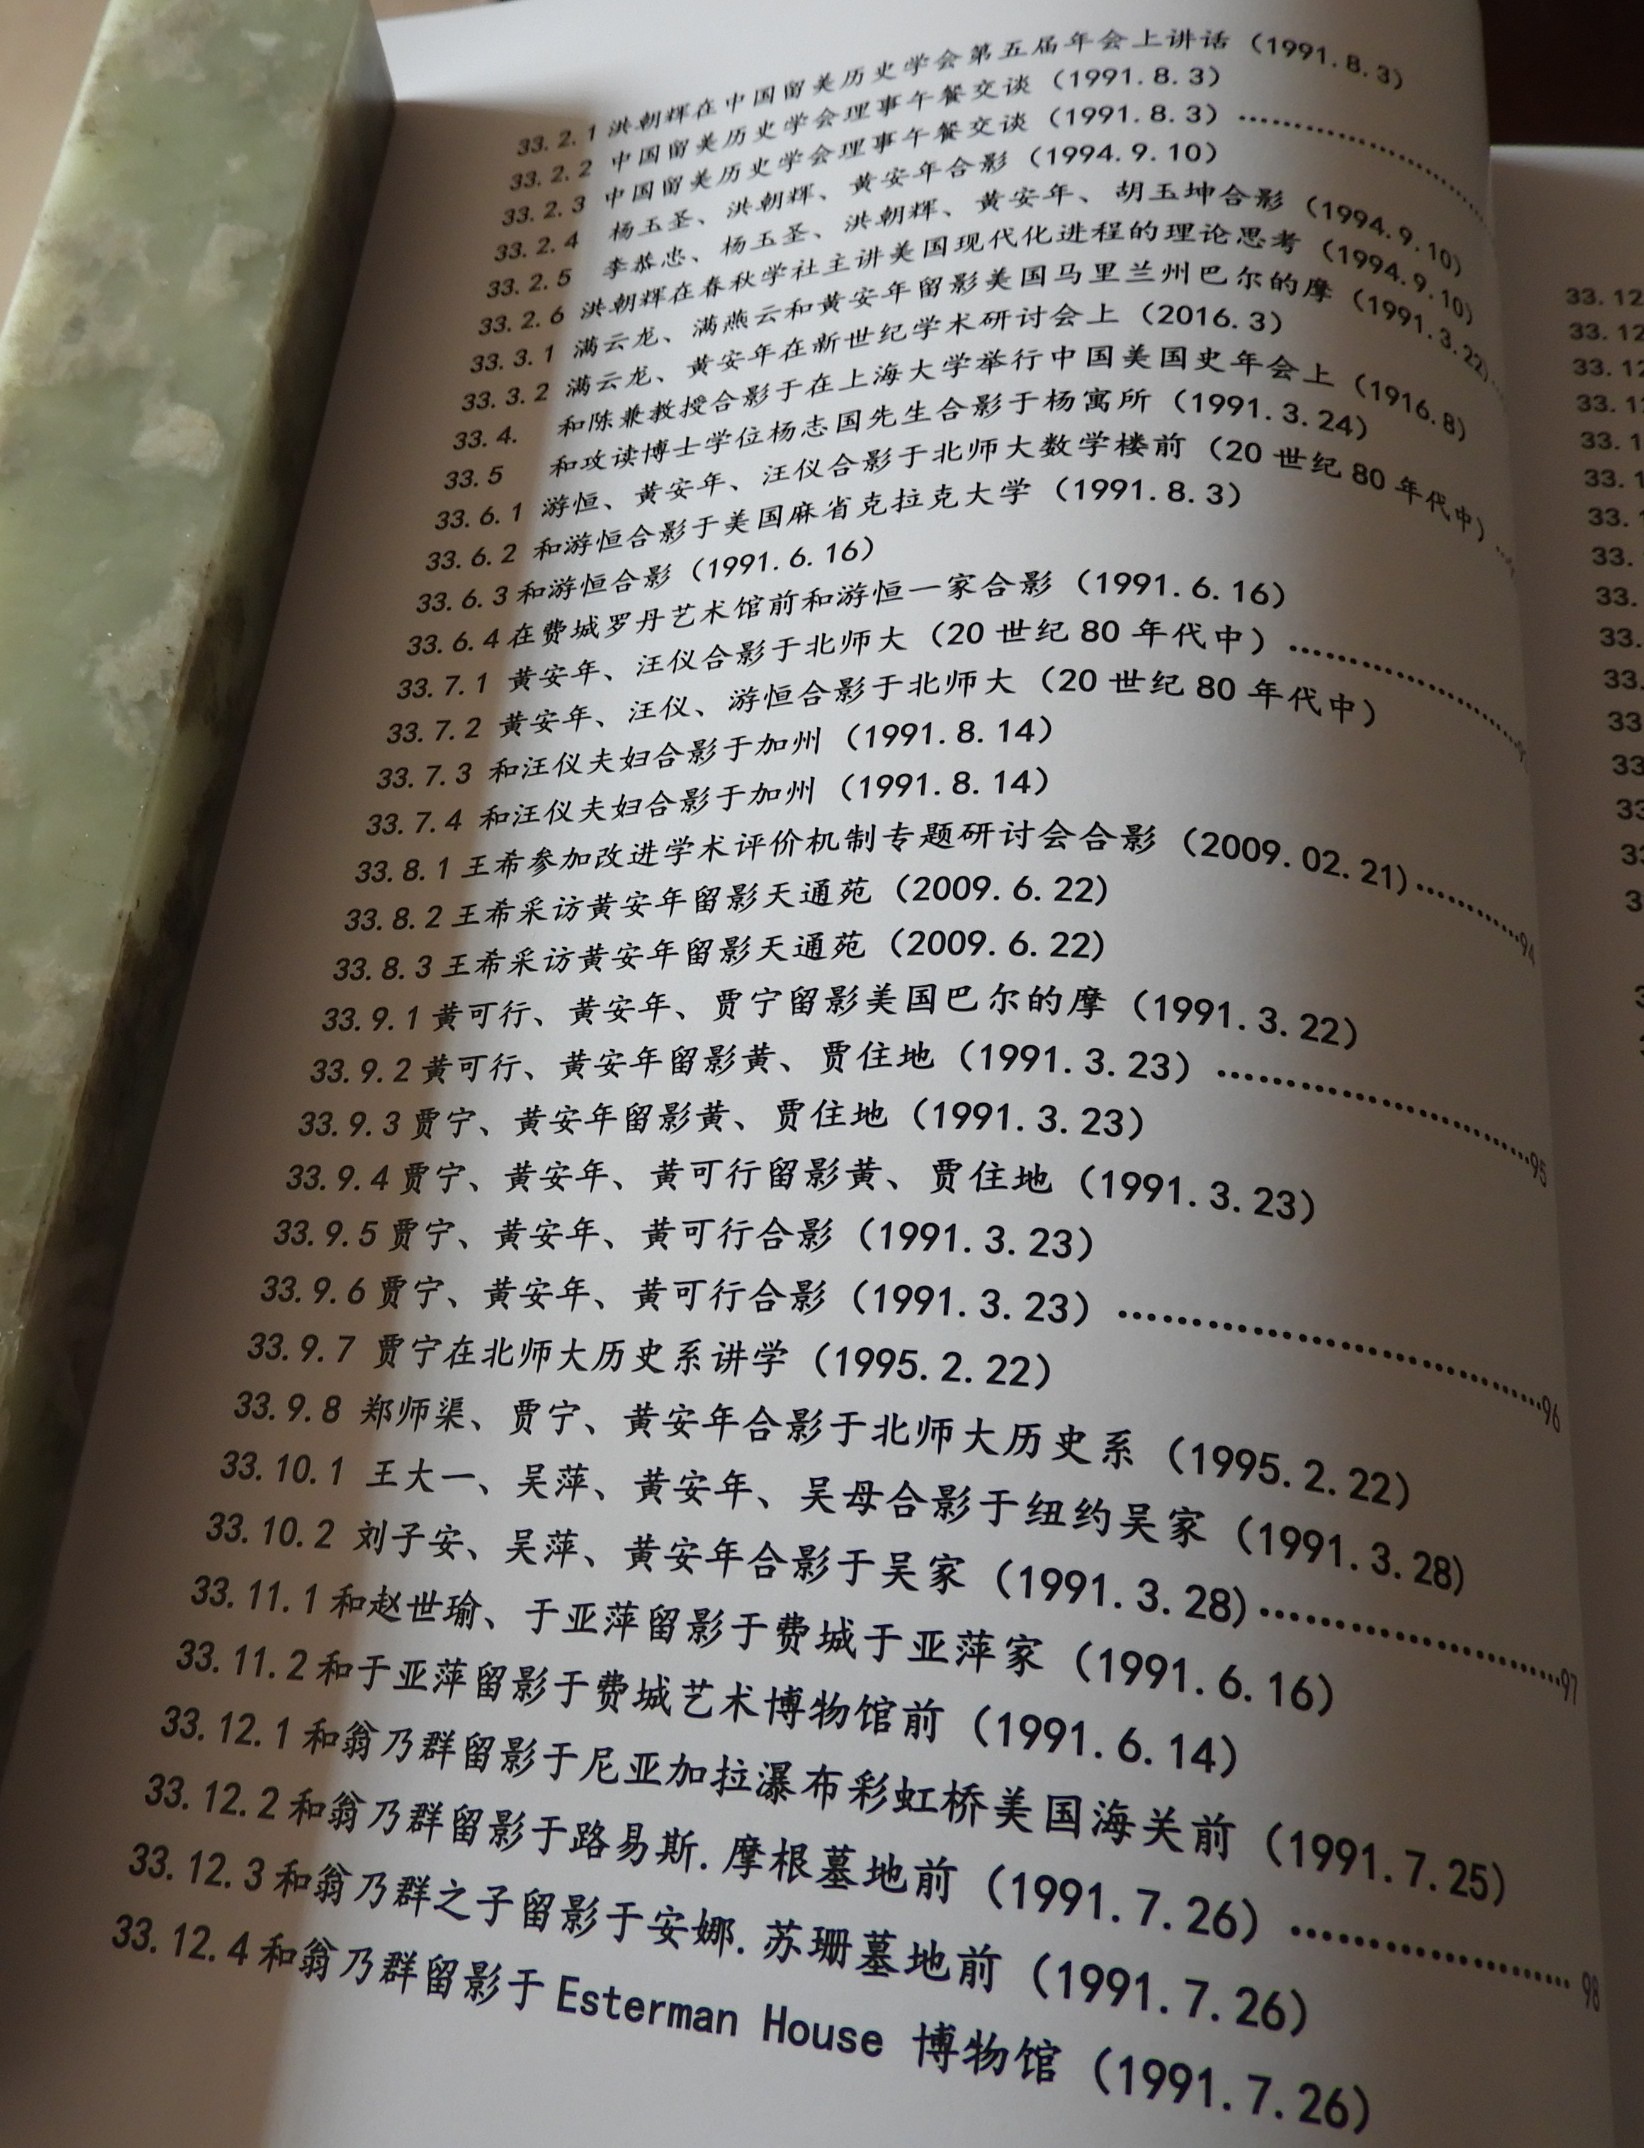 33.2.1 洪朝辉在中国留美历史学会第五届年会上讲话（1991.8.3）
33.2.2 中国留美历史学会理事午餐交谈（1991.8.3）
33.2.3 中国留美历史学会理事午餐交谈（1991.8.3）……………
33.2.4 杨玉圣、洪朝辉、黄安年合影（1994.9.10）
33.2.5 李恭忠、杨玉圣、洪朝辉、黄安年、胡玉坤合影（1994.9.10）
33.2.6 洪朝辉在春秋学社主讲美国现代化进程的理论思考（1994.9.10）
33.3.1 满云龙、满燕云和黄安年留影美国马里兰州巴尔的摩（1991.3.22）…
33.3.2 满云龙、黄安年在新世纪学术研讨会上（2016.3）
33.4. 和陈兼教授合影于在上海大学举行中国美国史年会上（1916.8）
33.5 和攻读博士学位杨志国先生合影于杨寓所（1991.3.24）
33.6.1 游恒、黄安年、汪仪合影于北师大数学楼前（20 世纪 80 年代中）…
33.6.2 和游恒合影于美国麻省克拉克大学（1991.8.3）
33.6.3 和游恒合影（1991.6.16）
33.6.4 在费城罗丹艺术馆前和游恒一家合影（1991.6.16）
33.7.1 黄安年、汪仪合影于北师大（20 世纪 80 年代中）……………
33.7.2 黄安年、汪仪、游恒合影于北师大（20 世纪 80 年代中）
33.7.3 和汪仪夫妇合影于加州（1991.8.14）
33.7.4 和汪仪夫妇合影于加州（1991.8.14）
33.8.1 王希参加改进学术评价机制专题研讨会合影（2009.02.21）………94
33.8.2 王希采访黄安年留影天通苑（2009.6.22）
33.8.3 王希采访黄安年留影天通苑（2009.6.22）
33.9.1 黄可行、黄安年、贾宁留影美国巴尔的摩（1991.3.22）
33.9.2 黄可行、黄安年留影黄、贾住地（1991.3.23）……………95
33.9.3 贾宁、黄安年留影黄、贾住地（1991.3.23）
33.9.4 贾宁、黄安年、黄可行留影黄、贾住地（1991.3.23）
33.9.5 贾宁、黄安年、黄可行合影（1991.3.23）
33.9.6 贾宁、黄安年、黄可行合影（1991.3.23）……………96
33.9.7 贾宁在北师大历史系讲学（1995.2.22）
33.9.8 郑师渠、贾宁、黄安年合影于北师大历史系（1995.2.22）
33.10.1 王大一、吴萍、黄安年、吴母合影于纽约吴家（1991.3.28）
33.10.2 刘子安、吴萍、黄安年合影于吴家（1991.3.28）……………97
33.11.1 和赵世瑜、于亚萍留影于费城于亚萍家（1991.6.16）
33.11.2 和于亚萍留影于费城艺术博物馆前（1991.6.14）
33.12.1 和翁乃群留影于尼亚加拉瀑布彩虹桥美国海关前（1991.7.25）
33.12.2 和翁乃群留影于路易斯.摩根墓地前（1991.7.26）……………98
33.12.3 和翁乃群之子留影于安娜.苏珊墓地前（1991.7.26）
33.12.4 和翁乃群留影于 Esterman House 博物馆（1991.7.26）